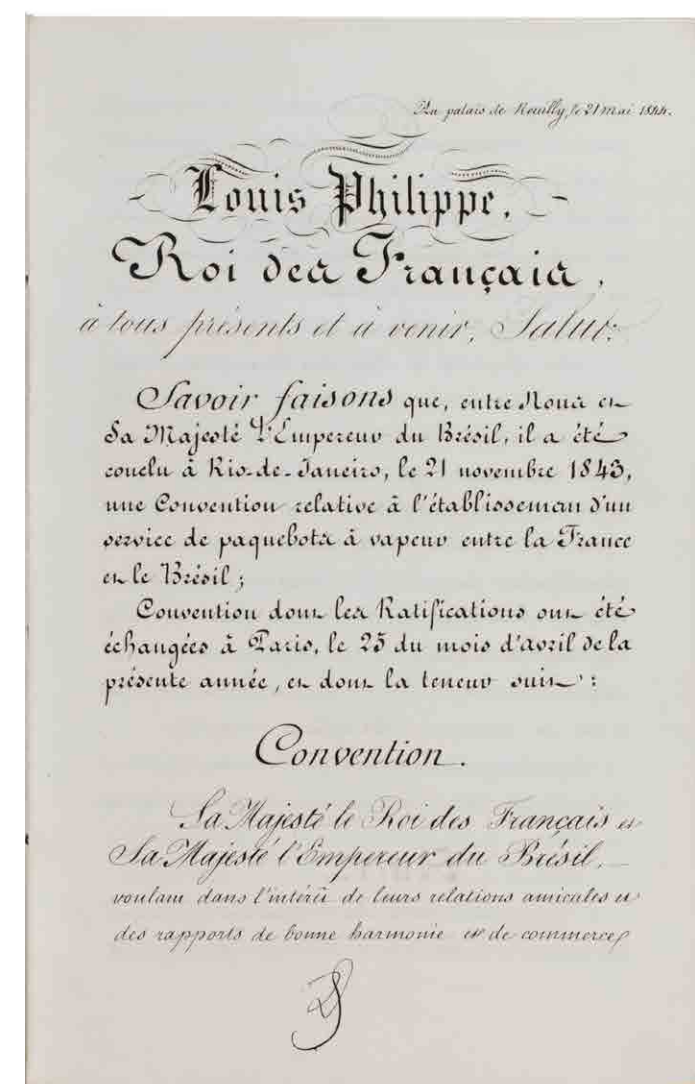 Au palais de Neuilly, le 21 mai 1844.
Louis Philippe,
Roi des Français,
à tous présents et à venir, Salut:
Savoir faisons que, entre Nous et
Sa Majesté l'Empereur du Brésil, il a été
conclu à Rio-de-Janeiro, le 21 novembre 1843,
une Convention relative à l'établissement d'un
service de paquebots à vapeur entre la France
et le Brésil;
Convention dont les Ratifications ont été
échangées à Paris, le 25 du mois d'avril de la
présente année, et dont la teneur suit:
Convention.
Sa Majesté le Roi des Français et
Sa Majesté l'Empereur du Brésil,
voulant dans l'intérêt de leurs relations amicales et
des rapports de bonne harmonie et de commerce